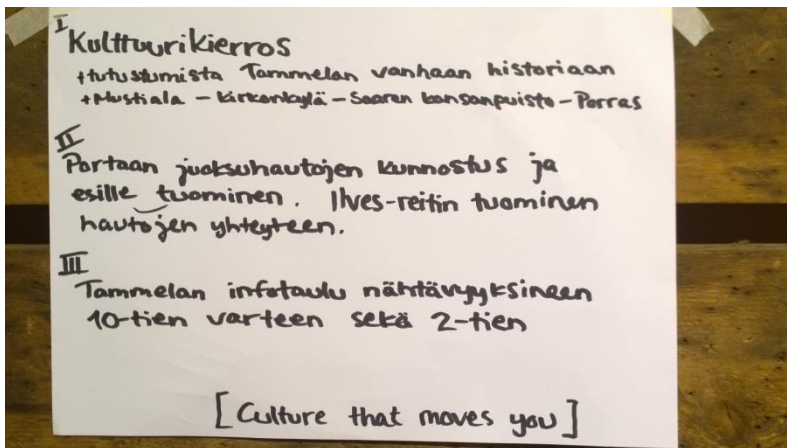 I
Kulttuurikierros
+tutustumista Tammelan vanhaan historiaan
+Mustiala - kirkonkylä - Saaren kansanpuisto - Porras
II
Portaan juoksuhautojen kunnostus ja
esille tuominen. Ilves-reitin tuominen
hautojen yhteyteen.
III
Tammelan infotaulu nähtävyyksineen
10-tien varteen sekä 2-tien
[Culture that moves you]